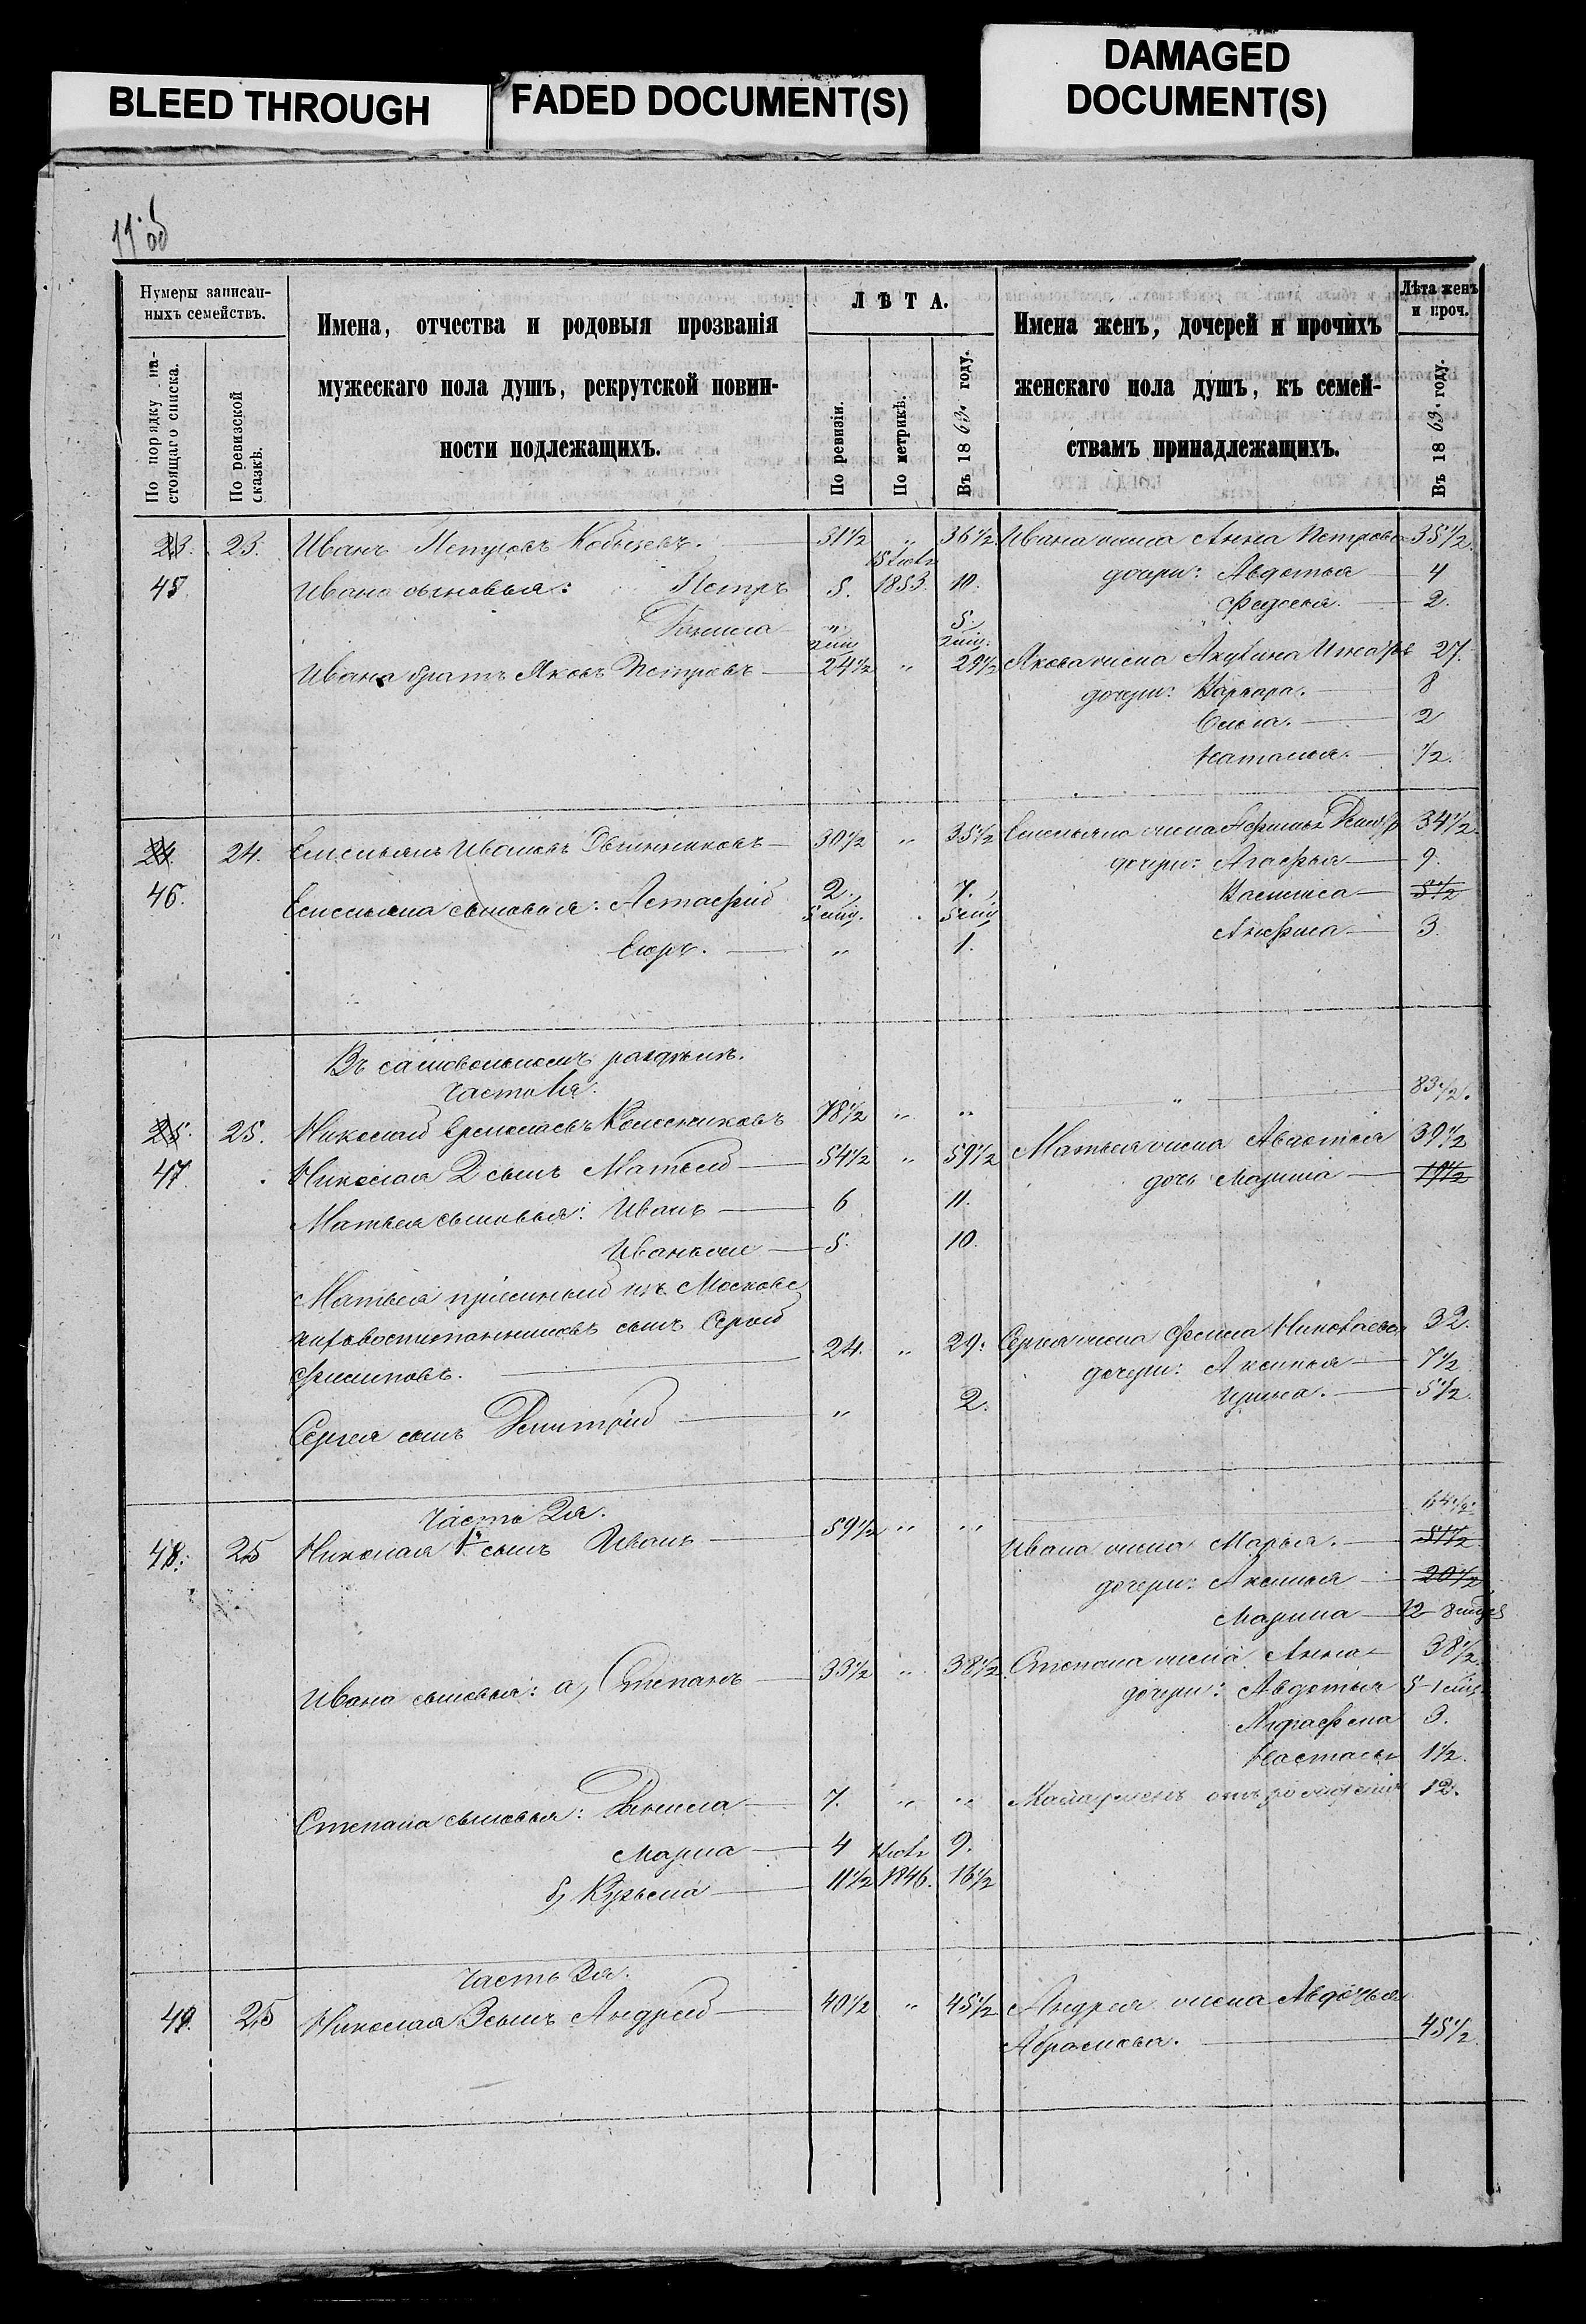 BLEED THROUGH
FADED DOCUMENT(S)
DAMAGED
DOCUMENT(S)
11 об
Нумеры записан-
ныхъ семействъ.
По порядку на-
стоящаго списка.
По ревизской
сказкѣ.
Имена, отчества и родовыя прозванія
мужескаго пола душъ, рекрутской повин-
ности подлежащихъ.
ЛѢТА.
По ревизіи.
По метрикѣ.
Въ 1863 году.
Имена женъ, дочерей и прочихъ
женскаго пола душъ, къ семей-
ствамъ принадлежащихъ.
Лѣта женъ
и проч.
Въ 1863 году.
23. 23. Иванъ Петровъ 31½ „ 36½ Ивана жена Анна Петрова 35½
45. Ивана сыновья: Петръ 5. 15 Іюля 1853. 10. дочери: Авдотья 4
Данила „ 5. Федосья 2.
Ивана братъ Яковъ Петровъ 24½ „ 29½ Якова жена Акулина 27.
дочери: Варвара. 8
2
Наталья. ½.
24. 24. Емельянъ Ивановъ 30½ „ 35½ Емельяна жена 34½
дочери: Агафья 9.
46. Емельяна сыновья: Астафій 2., 5 мѣц. 7., 5 мѣц. Василиса 5½
Егоръ. „ 1. Анфиса 3.
Въ самовольномъ раздѣлѣ.
Часть 1я.
83½.
25. 25. Николай Колесниковъ 78½ „ „
47. Николая 2 сынъ Матвей 54½ „ 59½ Матвея жена Авдотья 39½
дочь Марина 19½
Матвея сыновья: Иванъ 6 11.
Иванъ же 5. 10.
Матвея пріемный изъ Московс
питовоспитанниковъ сынъ Сергей
Филиповъ. 24. „ 29. Сергея жена Николаева 32.
дочери: Аксинья 7½
Сергея сынъ Дмитрій „ 2. Ирина. 5½
Часть 2я.
48. 25 Николая 1й сынъ Иванъ 59½ „ „ Ивана жена Марья. 51½
дочери: Аксинья 20½
Марина 12
Ивана сыновья: а, Степанъ 33½ „ 38½ Степана жена Анна 38½
дочери: Авдотья 5
Аграфена 3.
Настасья 1½.
Степана сыновья: Данила 7. „ „ 12.
4 9.
б, Кузьма 11½ 1846. 16½
Часть 3я.
49. 25 Николая 3 сынъ Андрей 40½ „ 45½ Андрея жена Авдотья
Абрамова. 45½